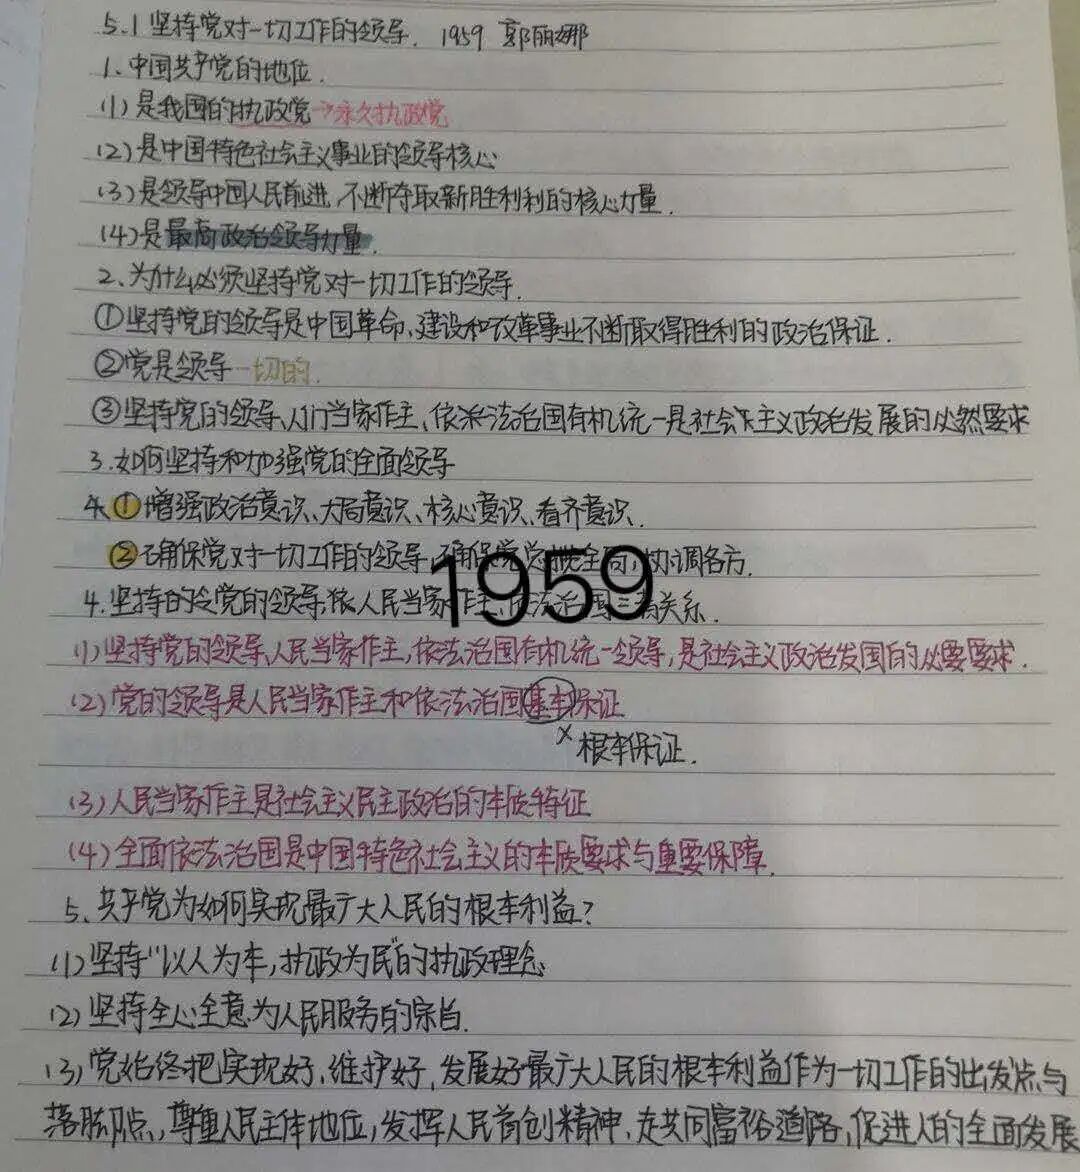 5.1 坚持党对一切工作的领导. 1959 郭丽娜
1、中国共产党的地位.
(1)是我国的执政党→永久执政党
(2)是中国特色社会主义事业的领导核心
(3)是领导中国人民前进,不断夺取新胜利利的核心力量.
(4)是最高政治领导力量.
2、为什么必须坚持党对一切工作的领导.
①坚持党的领导是中国革命,建设和改革事业不断取得胜利的政治保证.
②党是领导一切的.
③坚持党的领导、人们当家作主、依法治国有机统一是社会主义政治发展的必然要求
3、如何坚持和加强党的全面领导
①增强政治意识、大局意识、核心意识、看齐意识.
②确保党对一切工作的领导,确保党总揽全局,协调各方.
1959
4.坚持的党的领导,人民当家作主、依法治国三者关系.
(1)坚持党的领导、人民当家作主,依法治国有机统一领导,是社会主义政治发国的必要要求.
(2)党的领导是人民当家作主和依法治国基本保证
x 根本保证.
(3)人民当家作主是社会主义民主政治的本质特征
(4)全面依法治国是中国特色社会主义的本质要求与重要保障.
5、共产党为如何实现最广大人民的根本利益?
(1)坚持“以人为本,执政为民”的执政理念
(2)坚持全心全意为人民服务的宗旨.
(3)党始终把实现好、维护好、发展好最广大人民的根本利益作为一切工作的出发点与
落脚点,尊重人民主体地位,发挥人民首创精神、走共同富裕道路,促进人的全面发展